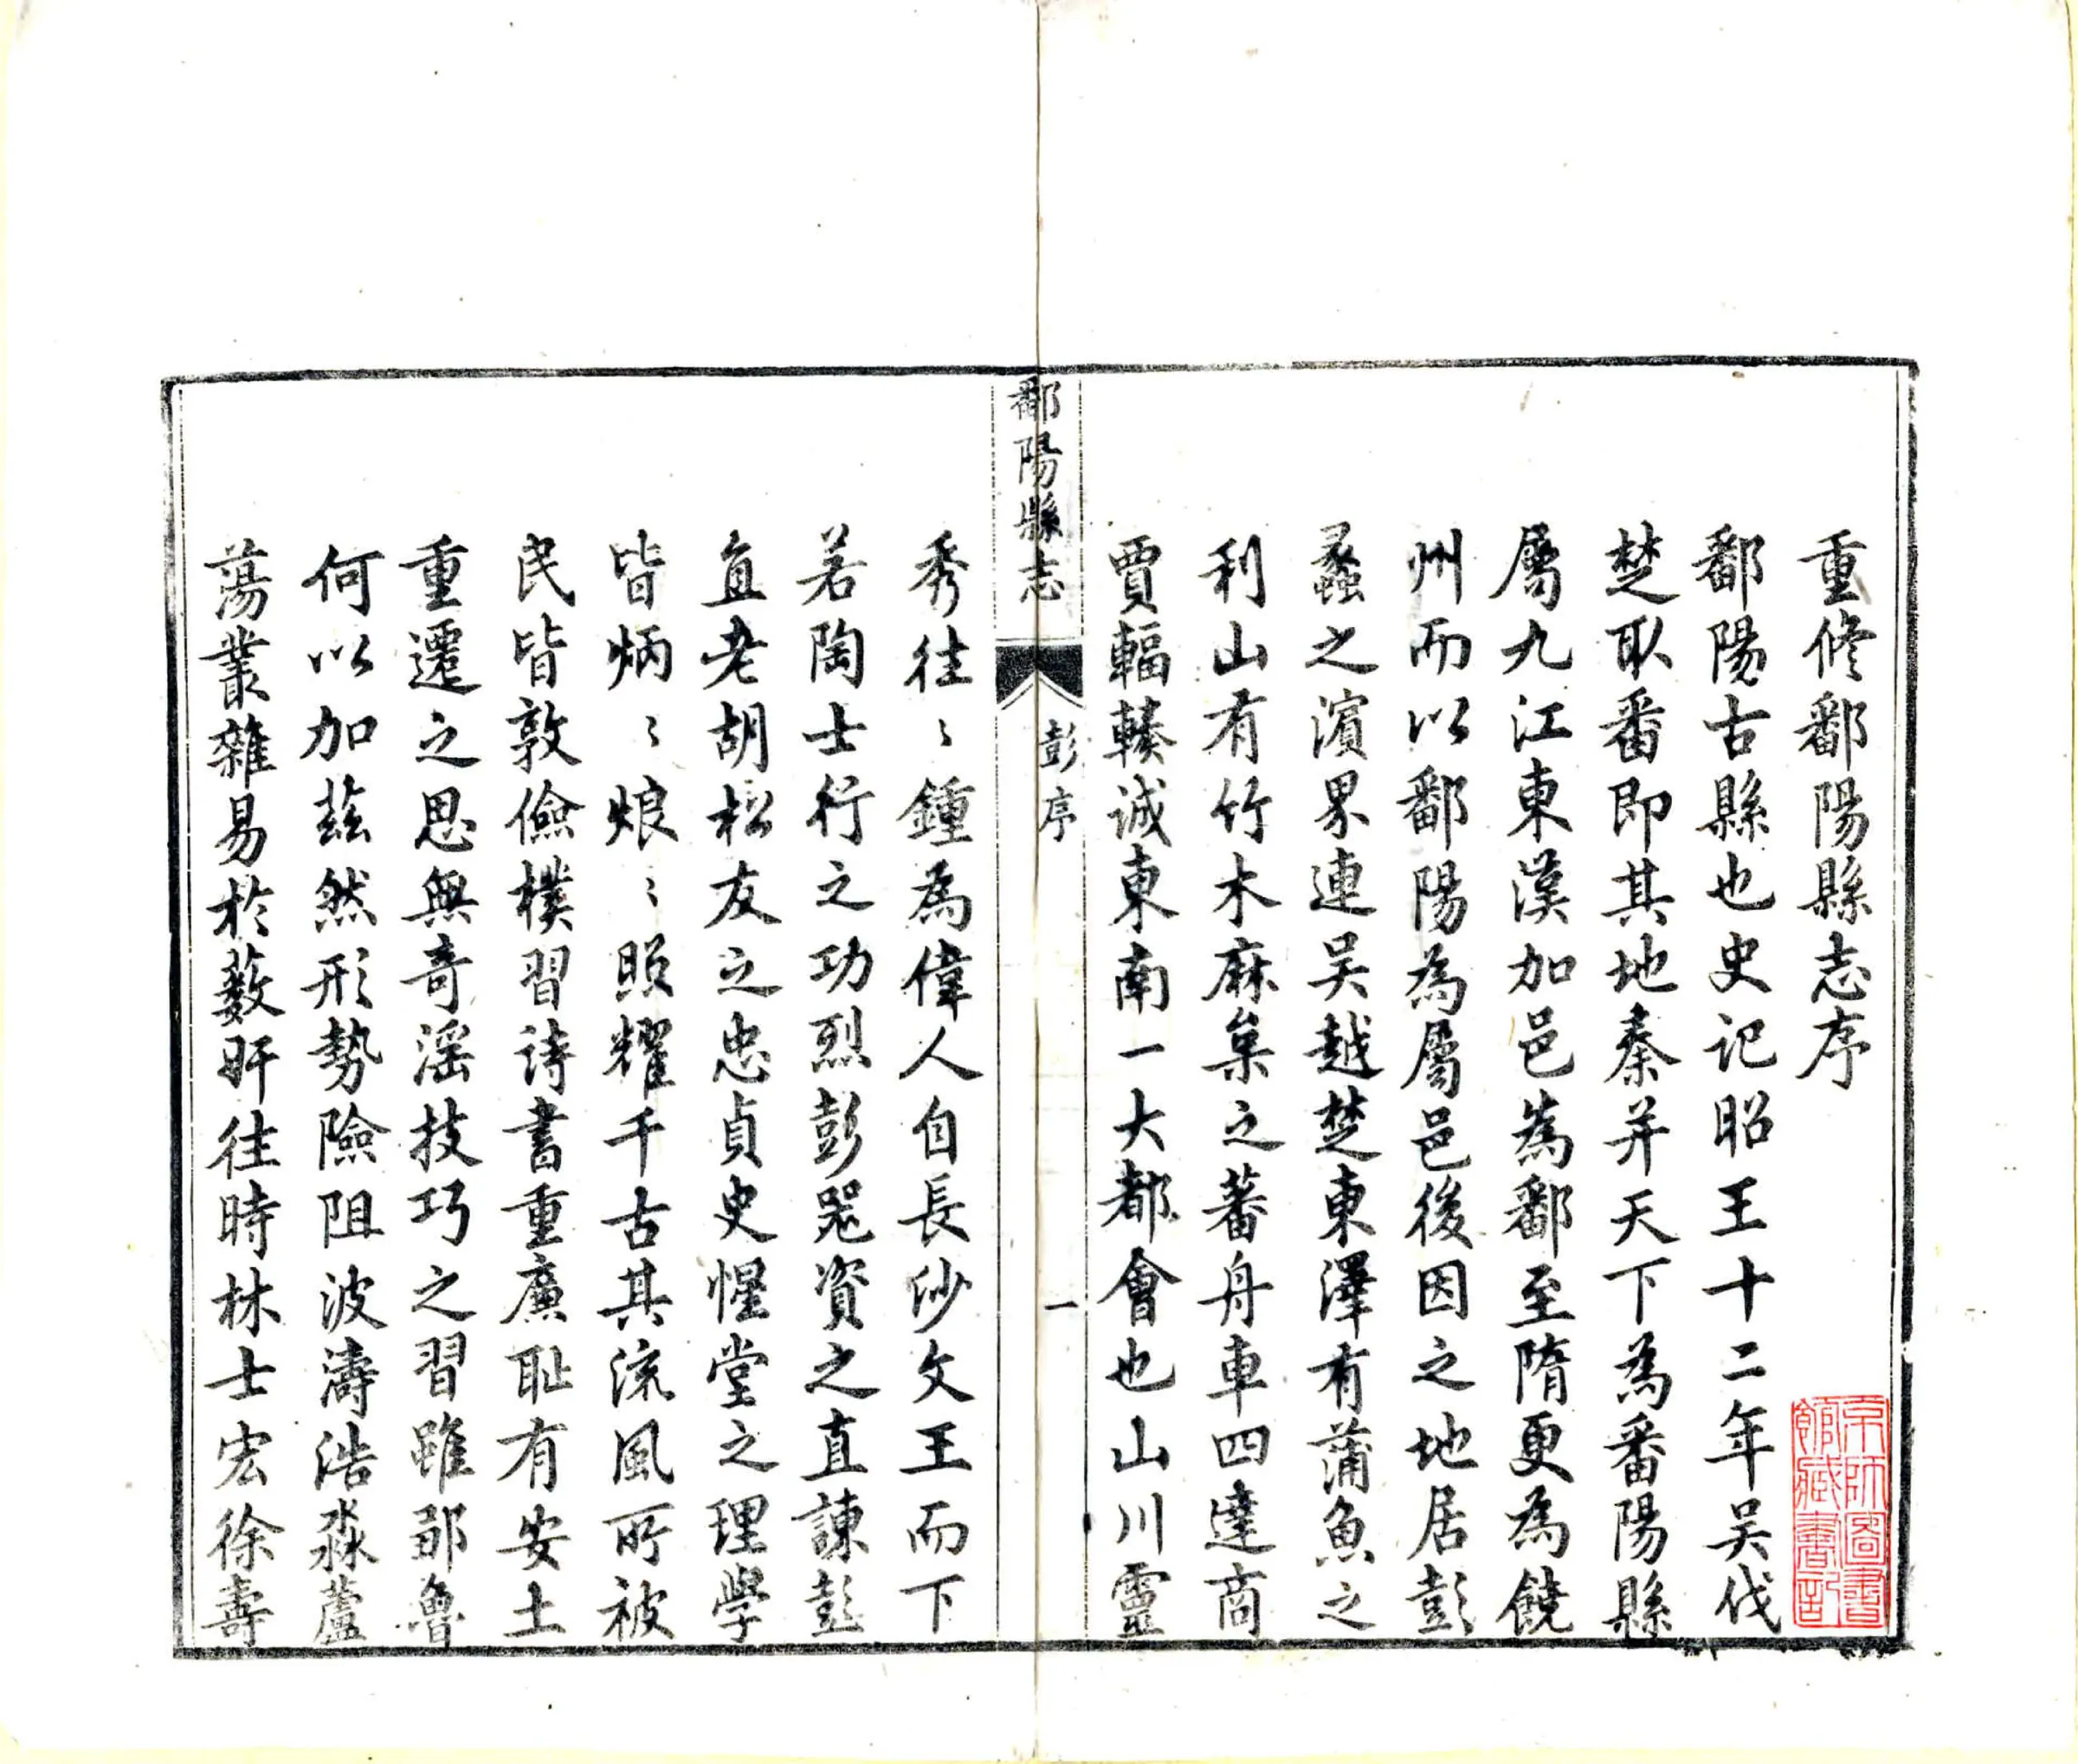 重修鄱陽縣志序
鄱陽古縣也史記昭王十二年吴伐
楚取番即其地秦并天下為番陽縣
屬九江東漢加邑為鄱至隋更為饒
州而以鄱陽為屬邑後因之地居彭
蠡之濱界連吴越楚東澤有蒲魚之
利山有竹木麻枲之蕃舟車四達商
賈輻輳誠東南一大都會也山川靈
鄱陽縣志
彭序
一
秀往〻鍾為偉人自長沙文王而下
若陶士行之功烈彭器資之直諫彭
直老胡松友之忠貞史惺堂之理學
皆炳〻烺〻照耀千古其流風所被
民皆敦儉樸習詩書重廉耻有安土
重遷之思無奇淫技巧之習雖鄒魯
何以加茲然形勢險阻波濤浩淼蘆
蕩叢雜易於藪奸往時林士宏徐壽
京師圖書
館藏書記